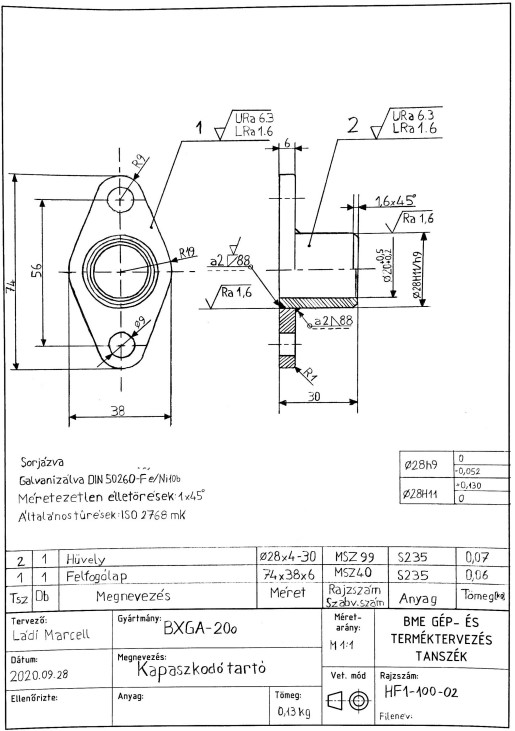 1
URa 6.3
LRa 1.6
6
2
URa 6.3
LRa 1.6
R9
1,6x45°
Ra 1,6
R19
a2 88
Ø20 +0,5 +0,2
Ø28H11/h9
74
56
Ra 1,6
Ø9
a2 88
R1
38
30
Sorjázva
Galvanizálva DIN 50260-Fe/Ni10b
Méretezetlen élletörések: 1x45°
Általános tűrések: ISO 2768 mK
Ø28h9 0 -0,052
Ø28H11 +0,130 0
2 1 Hüvely Ø28x4-30 MSZ 99 S235 0,07
1 1 Felfogólap 74x38x6 MSZ 40 S235 0,06
Tsz Db Megnevezés Méret Rajzszám Szabv.szám Anyag Tömeg(kg)
Tervező:
Ládi Marcell
Gyártmány:
BXGA-200
Méret-
arány:
M 1:1
BME GÉP- ÉS
TERMÉKTERVEZÉS
TANSZÉK
Dátum:
2020.09.28
Megnevezés:
Kapaszkodó tartó
Vet. mód
Rajzszám:
HF1-100-02
Ellenőrizte:
Anyag:
Tömeg:
0,13 kg
Filenév: